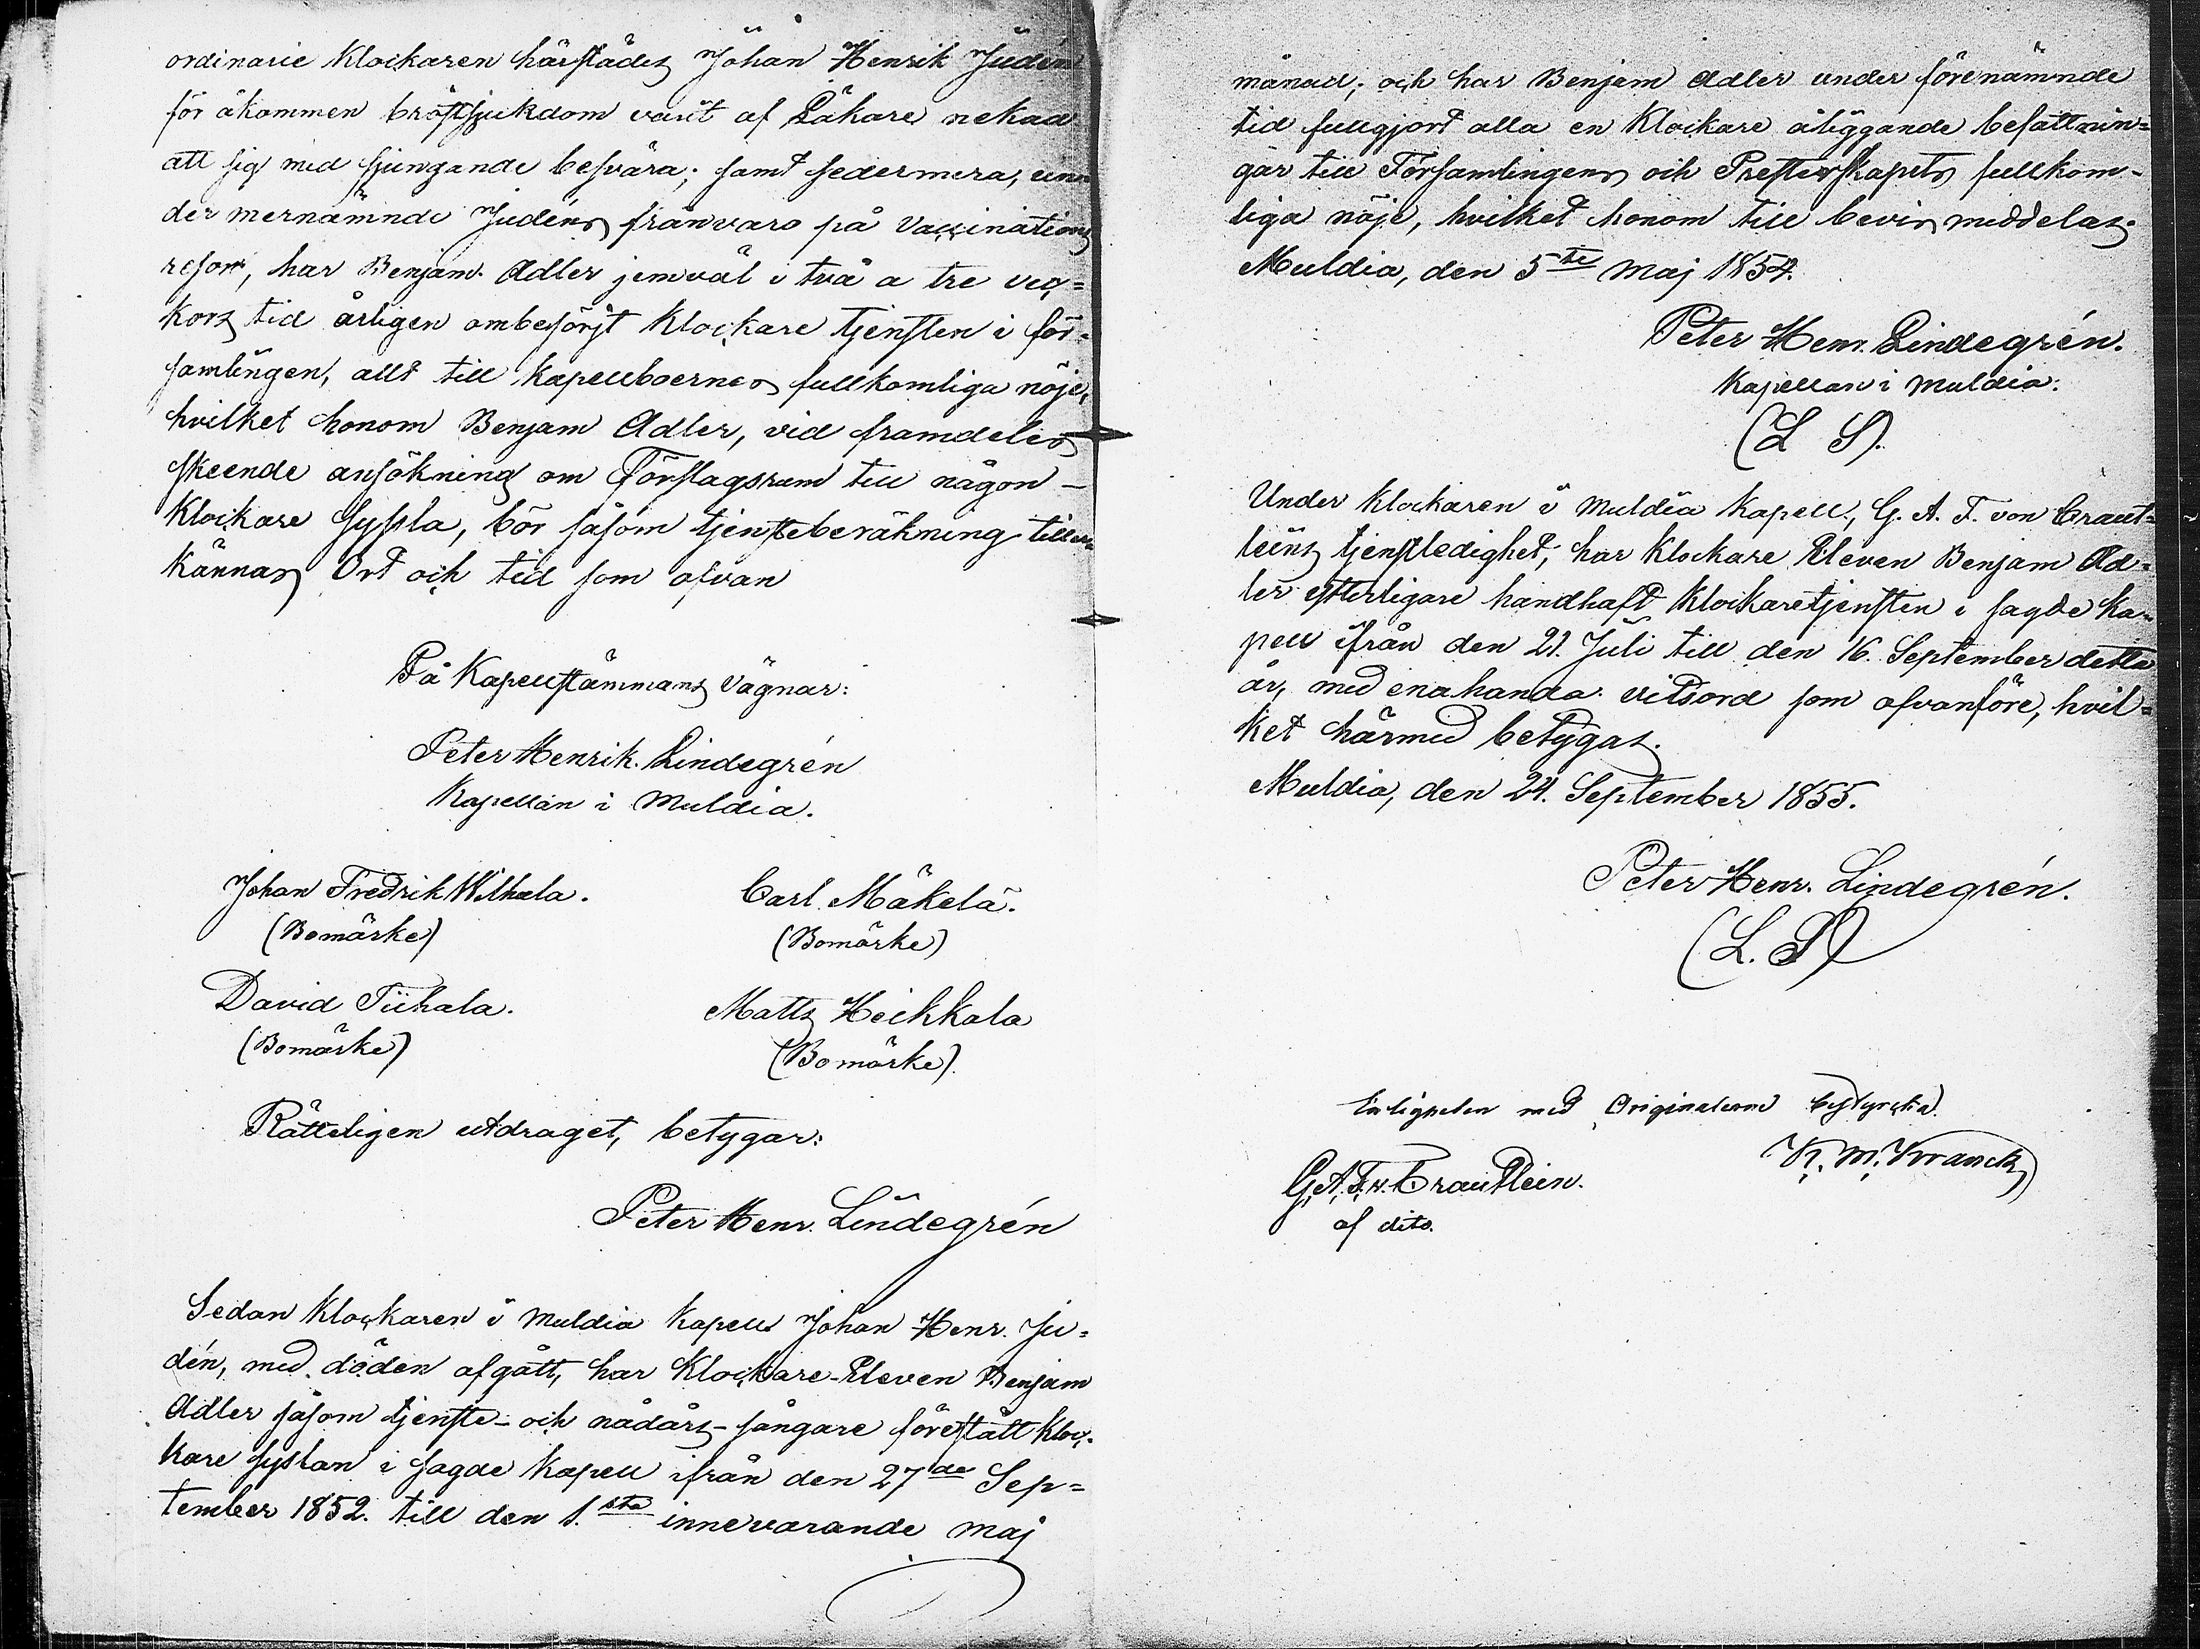 ordinarie Klockaren härstädes Johan Henrik Judén
för åkommen bröstsjukdom varit af Läkare nekad
att sig med sjungande besvära; samt sedermera, un-
der mernämnde Judéns frånvaro på Vaccinations
resor, har Benjam. Adler jemväl i två a tre vec-
kors tid årligen ombesörjt Klockare tjensten i för-
samlingen, allt till Kapellboernes fullkomliga nöje,
hvilket honom Benjam Adler, vid framdeles
skeende ansökning om Förslagsrum till någon
Klockare syssla, bör såsom tjensteberäkning tiller-
kännas Ort och tid som ofvan
På Kapellstämmans Vägnar:
Peter Henrik Lindegrén
Kapellan i Muldia.
Johan Fredrik Wilhala. Carl Mäkelä.
(Bomärke) (Bomärke)
David Tiihala. Matts Heikkala
(Bomärke) (Bomärke).
Rätteligen utdraget, betygar:
Peter Henr. Lindegrén
Sedan Klockaren i Muldia Kapell Johan Henr. Ju-
dén, med döden afgått, har Klockare-Eleven Benjam
Adler såsom tjenste- och nådårs-sångare förestått kloc-
kare syslan i sagde Kapell ifrån den 27de Sep-
tember 1852. till den 1.sta innevarande maj
månad; och har Benjam Adler under förenämnde
tid fullgjort alla en Klockare åliggande befattnin-
gar till Församlingens och Presterskapets fullkom-
liga nöje, hvilket honom till bevis meddelas.
Muldia, den 5te Maj 1854.
Peter Henr. Lindegrén.
Kapellan i Muldia.
(L S).
Under Klockaren i Muldia Kapell, G. A. F. von Craut-
leins tjenstledighet, har Klockare Eleven Benjam Ad-
ler ytterligare handhaft Klockaretjensten i sagde Ka-
pell ifrån den 21. Juli till den 16. September detta
år, med enahanda vitsord som ofvanföre, hvil-
ket härmed betygas.
Muldia, den 24. September 1855.
Peter Henr. Lindegrén.
(L. S)
Enligheten med Originalerne bestyrcka.
K. M. Kranck
G. A. F. v. Crautlein.
af dito.